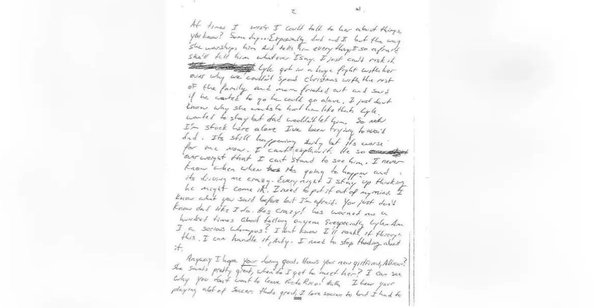 2
At times I wish I could talk to her about things,
you know? Some day... Especially dad and I but the way
she worships him and tells him everything I so afraid
she'll tell him whatever I say. I just can't risk it
Lyle got in a huge fight with her
over why we couldn't spend christmas with the rest
of the family and mom freaked out and said
if he wanted to go he could go alone. I just don't
know why she wants to hurt him like that. Lyle
wanted to stay but dad wouldn't let him. So now
I'm stuck here alone. I've been trying to avoid
dad. Its still happening Andy but its worse
for me now. I can't explain it. He so
overweight that I cant stand to see him. I never
know when its going to happen and
its driving me crazy. Every night I stay up thinking
he might come in. I need to put it out of my mind. I
know what you said before but I'm afraid. You just don't
know dad like I do. Hes crazy! Hes warned me a
hundred times about telling anyone Especially Lyle. Am
I a serious whimpus? I dont know I'll make it through
this. I can handle it, Andy. I need to stop thinking about
it.
Anyway I hope your doing good. Hows your new girlfriend,
She sounds pretty great, when do I get to meet her? I can see
why you don't want to leave I hear your
playing alot of soccer thats great, I love soccer to but I had to